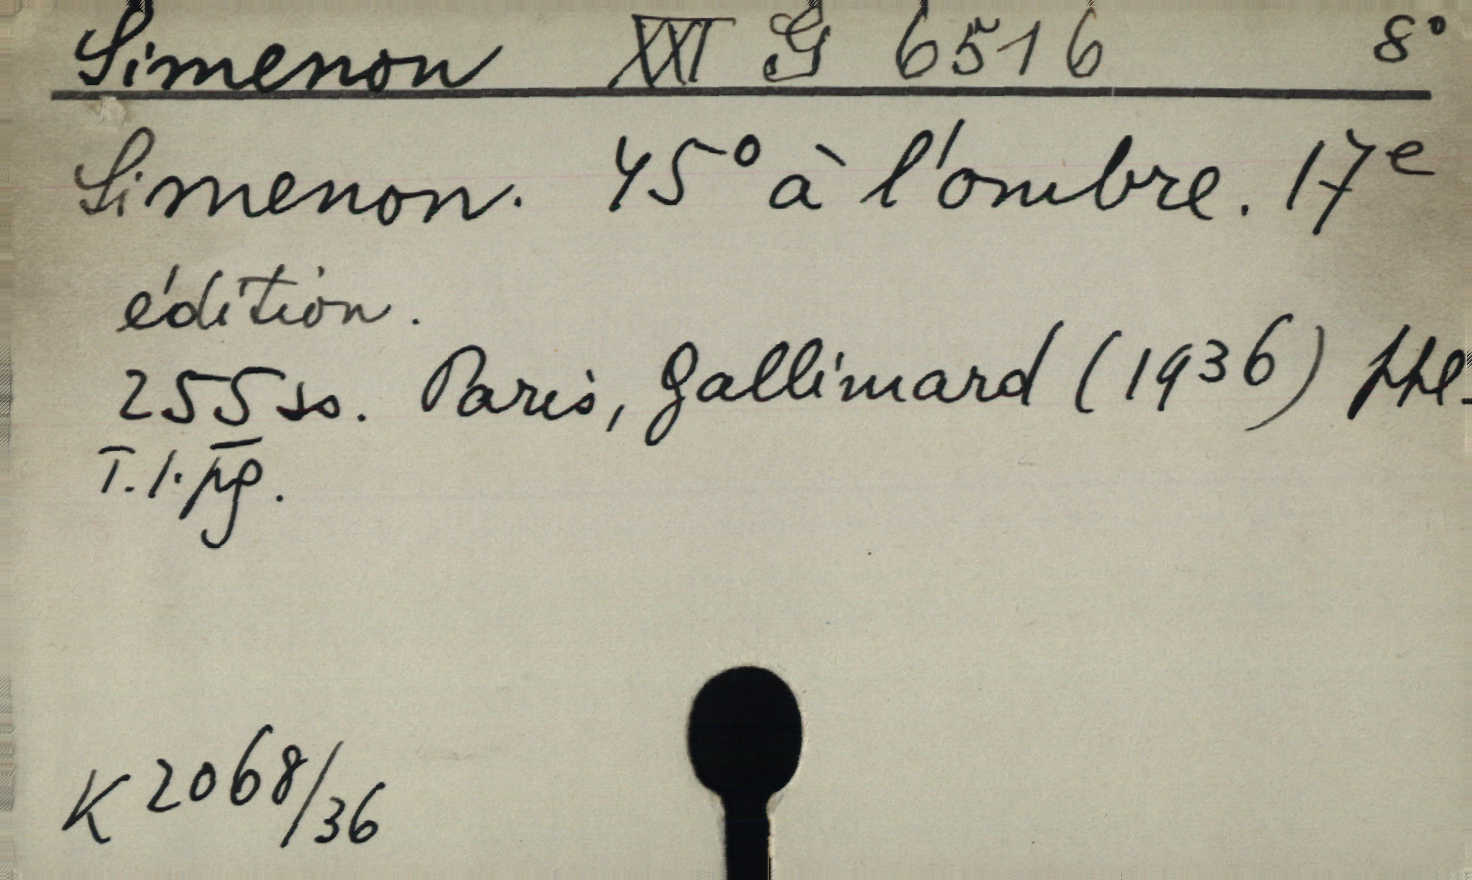 Simenon XXI G 6516 8°
Simenon. 45° à l'ombre. 17e
édition.
255 ss. Paris, Gallimard (1936)
T. 1. pg.
K 2068/36